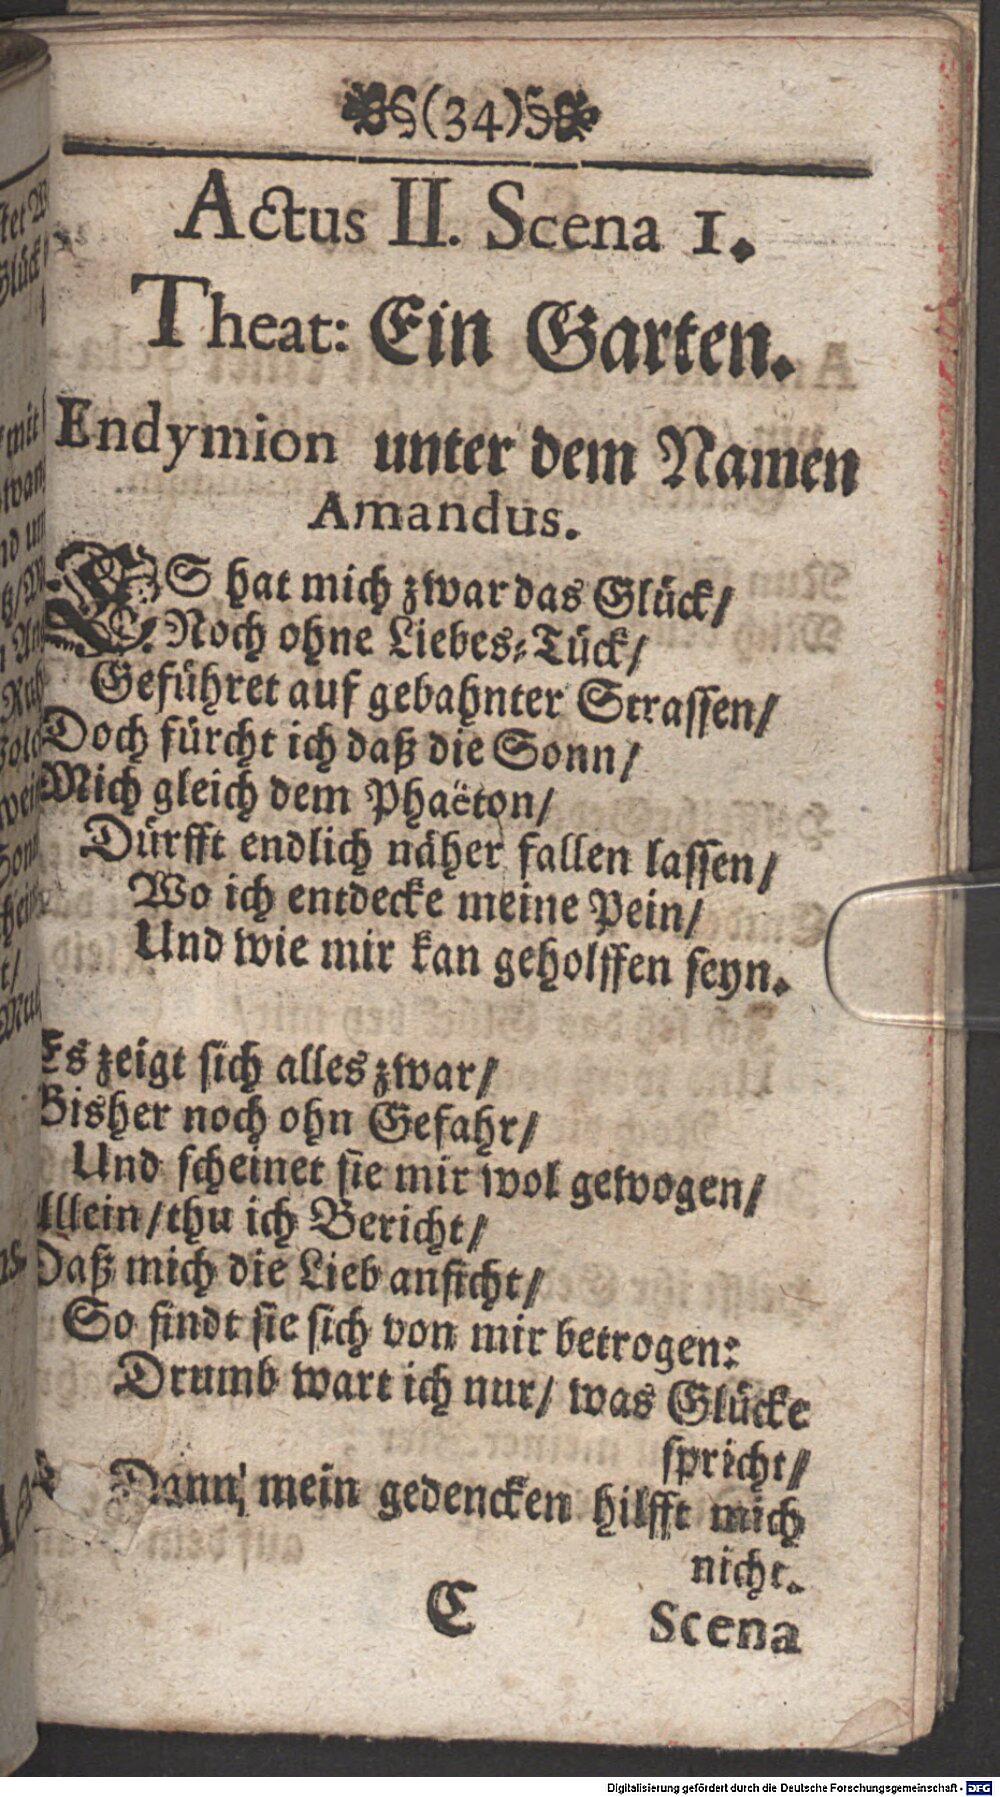 §(34)§
Actus II. Scena 1.
Theat: Ein Garten.
Endymion unter dem Namen
Amandus.
ES hat mich zwar das Glück/
Noch ohne Liebes-Tück/
Geführet auf gebahnter Strassen/
Doch fürcht ich daß die Sonn/
Mich gleich dem Phaëton/
Dürfft endlich näher fallen lassen/
Wo ich entdecke meine Pein/
Und wie mir kan geholffen seyn.
Es zeigt sich alles zwar/
Bisher noch ohn Gefahr/
Und scheinet sie mir wol gewogen/
Allein/thu ich Bericht/
Daß mich die Lieb anficht/
So findt sie sich von mir betrogen:
Drumb wart ich nur/ was Glücke
spricht/
Dann mein gedencken hilfft mich
nicht.
C
Scena
Digitalisierung gefördert durch die Deutsche Forschungsgemeinschaft - DFG